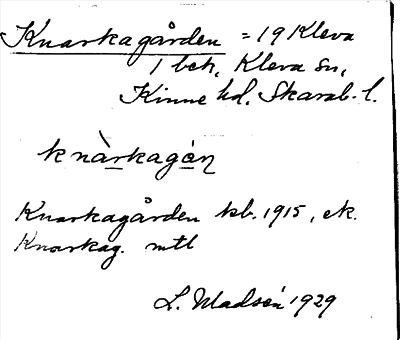 Knarkagården = 19 Kleva
1 beh, Kleva sn,
Kinne hd. Skarab. l.
knàrkagȧ́n
Knarkagården kb. 1915, ek.
Knarkag. mtl
L. Madsén 1929